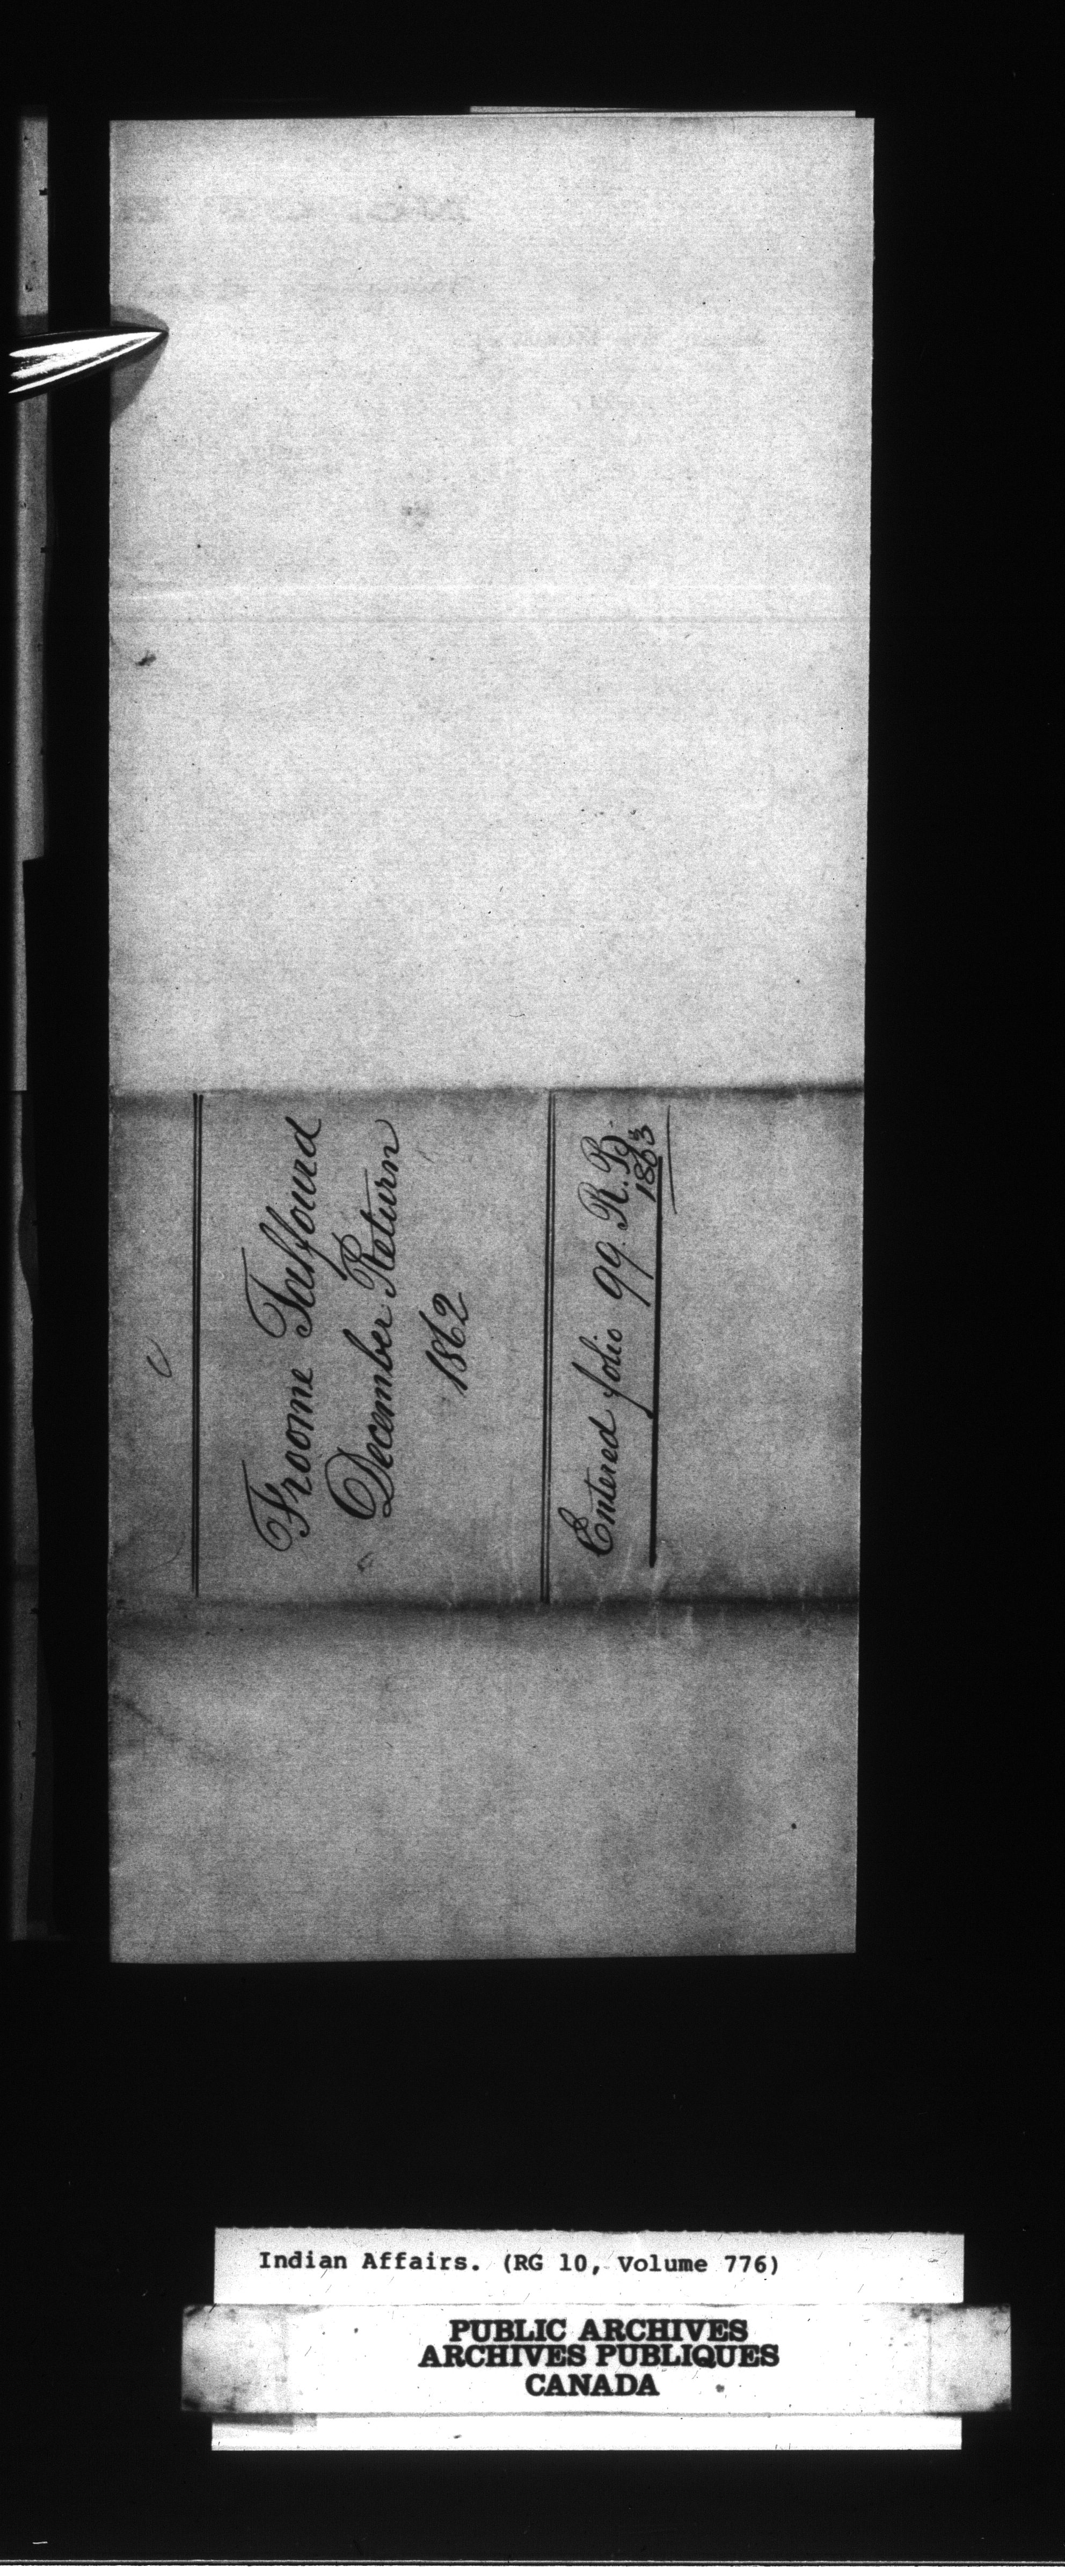 Froome Talfourd
December Return
1862
Entered folio 99. R. B.
1863
Indian Affairs. (RG 10, Volume 776)
PUBLIC ARCHIVES
ARCHIVES PUBLIQUES
CANADA